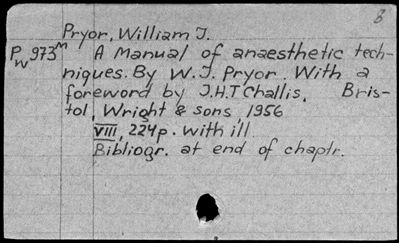 B
Pryor, William J.
Pw973m A Manual of anaesthetic tech-
niques. By W.J. Pryor. With a
foreword by J.H.T Challis. Bris-
tol, Wright & sons, 1956
VIII, 224p. with ill.
Bibliogr. at end of chaptr.